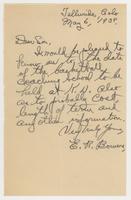 Telluride, Colo
May 6, 1938
Dear Sir,
I would be pleased to
know as to the date
of the basketball
coaching school to be
held at K. U. Also
as to probable cost
length of term and
any other information.
Very truly yours,
E. H. Bowers